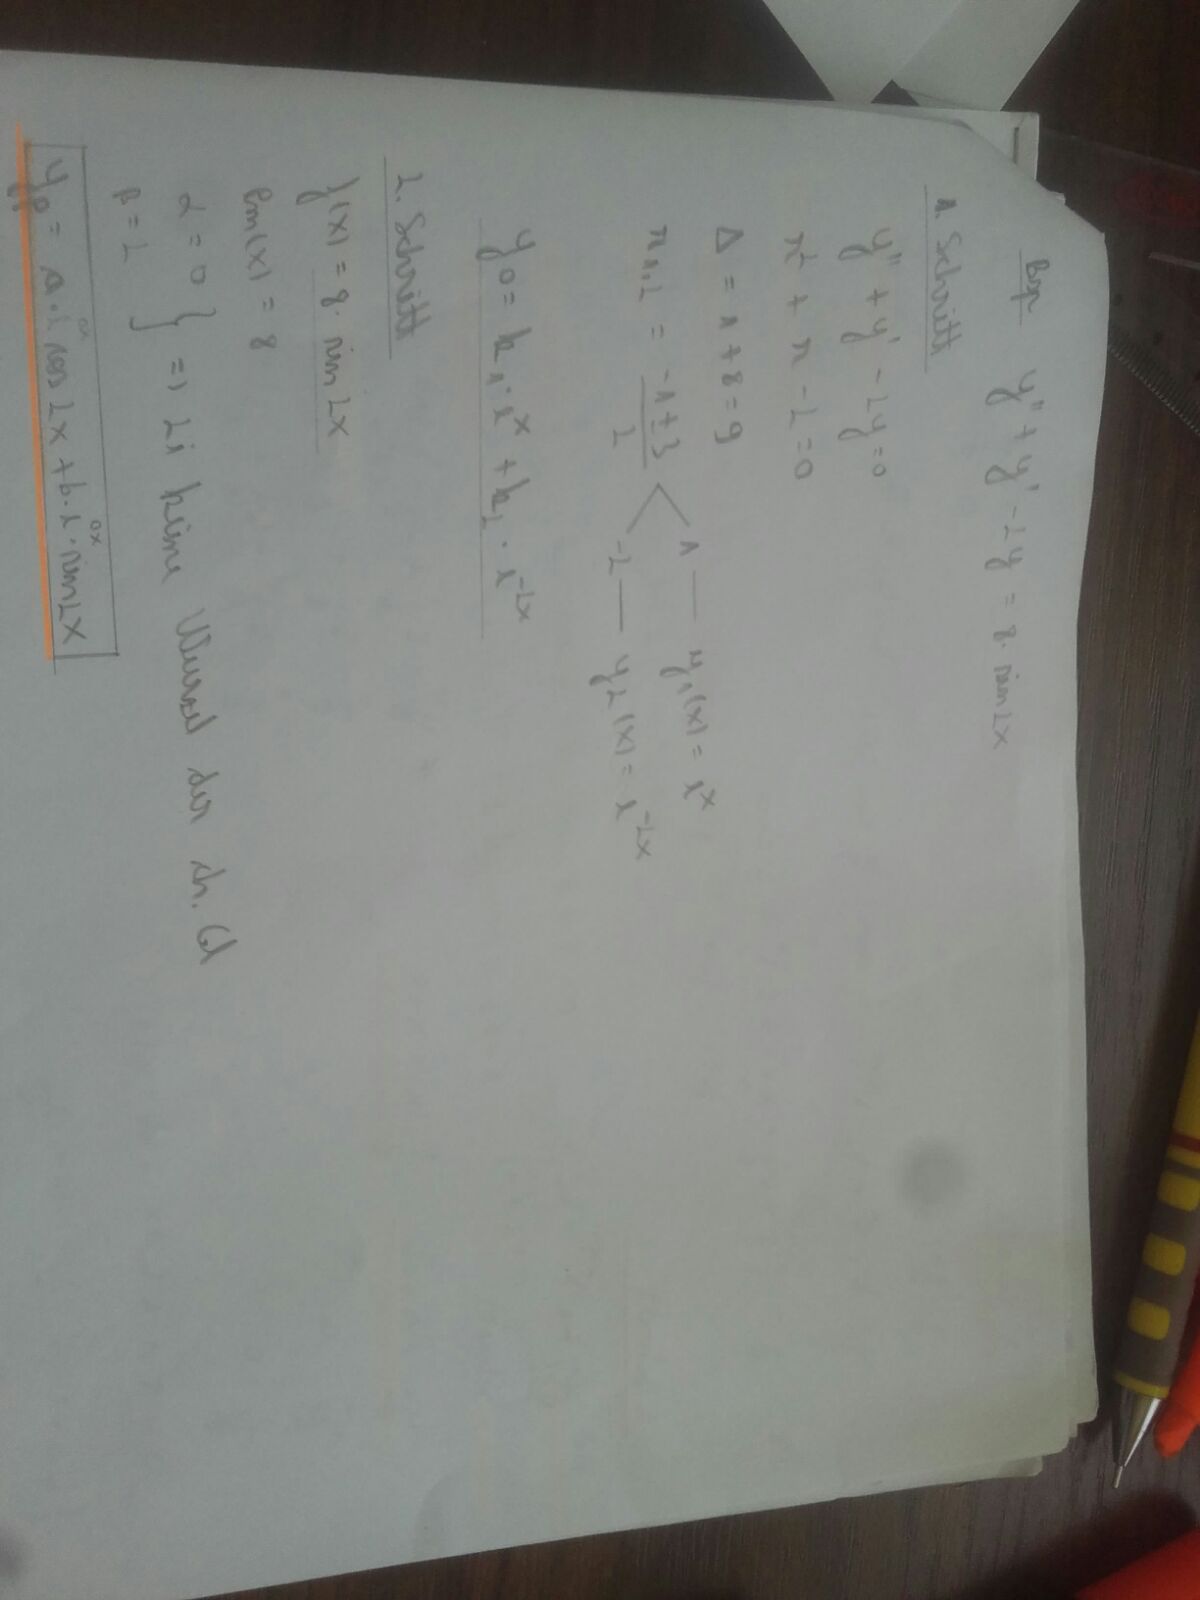 Bsp y'' + y' - 2y = 8· sin 2x
1. Schritt
y'' + y' - 2y = 0
r² + r - 2 = 0
Δ = 1 + 8 = 9
r₁,₂ = (-1 ± 3)/2 < 1 — y₁(x) = eˣ
-2 — y₂(x) = e⁻²ˣ
y₀ = k₁ · eˣ + k₂ · e⁻²ˣ
2. Schritt
f(x) = 8· sin 2x
Pm(x) = 8
α = 0 } => 2i keine Wurzel der ch. Gl
β = 2
yp = a · e^0x cos 2x + b · e^0x · sin 2x